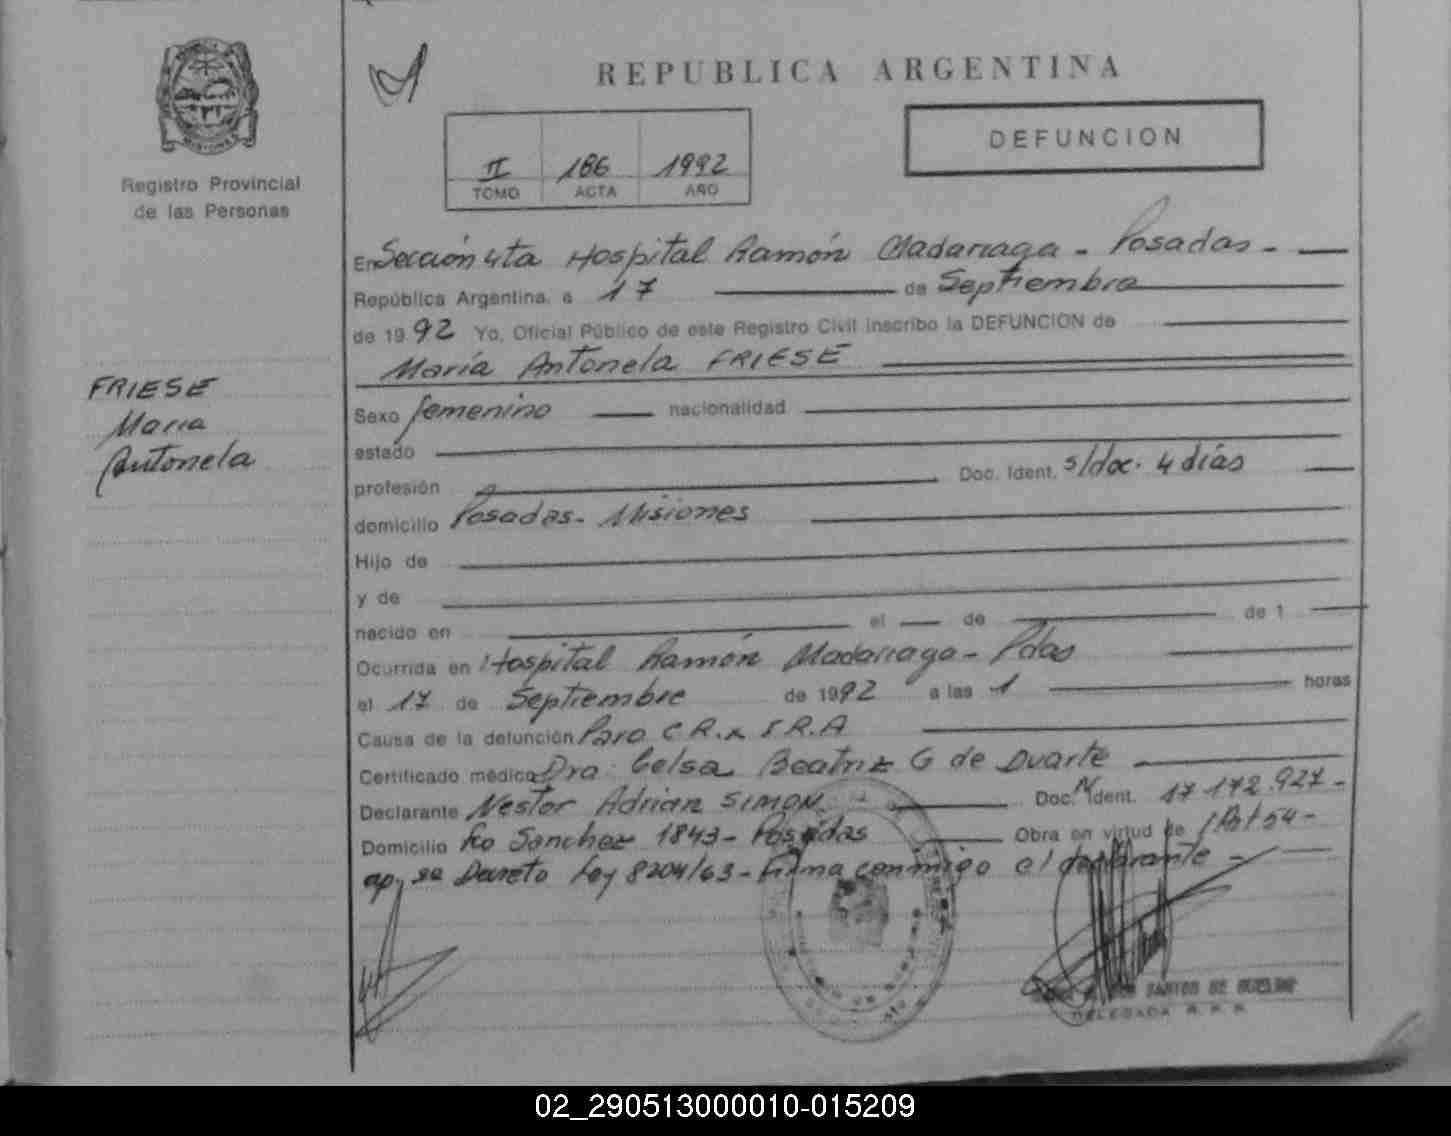 REPUBLICA ARGENTINA
DEFUNCION
II 186 1992
TOMO ACTA AÑO
MISIONES
Registro Provincial
de las Personas
FRIESE
Maria
Antonela
En Sección 4ta Hospital Ramón Madariaga - Posadas -
República Argentina, a 17 de Septiembre
de 1992 Yo, Oficial Público de este Registro Civil inscribo la DEFUNCION de
María Antonela FRIESE
Sexo femenino nacionalidad
estado
profesión Doc. Ident. s/doc. 4 días
domicilio Posadas - Misiones
Hijo de
y de
nacido en el de de 1
Ocurrida en Hospital Ramón Madariaga - Pdas
el 17 de Septiembre de 1992 a las 1 horas
Causa de la defunción Paro C.R. x
Certificado médico Dra. Celsa Beatriz G de Duarte
Declarante Nestor Adrian SIMON Doc. Ident. 17.172.927 -
Domicilio Fco Sanchez 1843 - Posadas Obra en virtud de Art 54 -
Decreto Ley 8204/63 - Firma conmigo el declarante -
SANTOS DE
DELEGADA R. P. P.
02_290513000010-015209